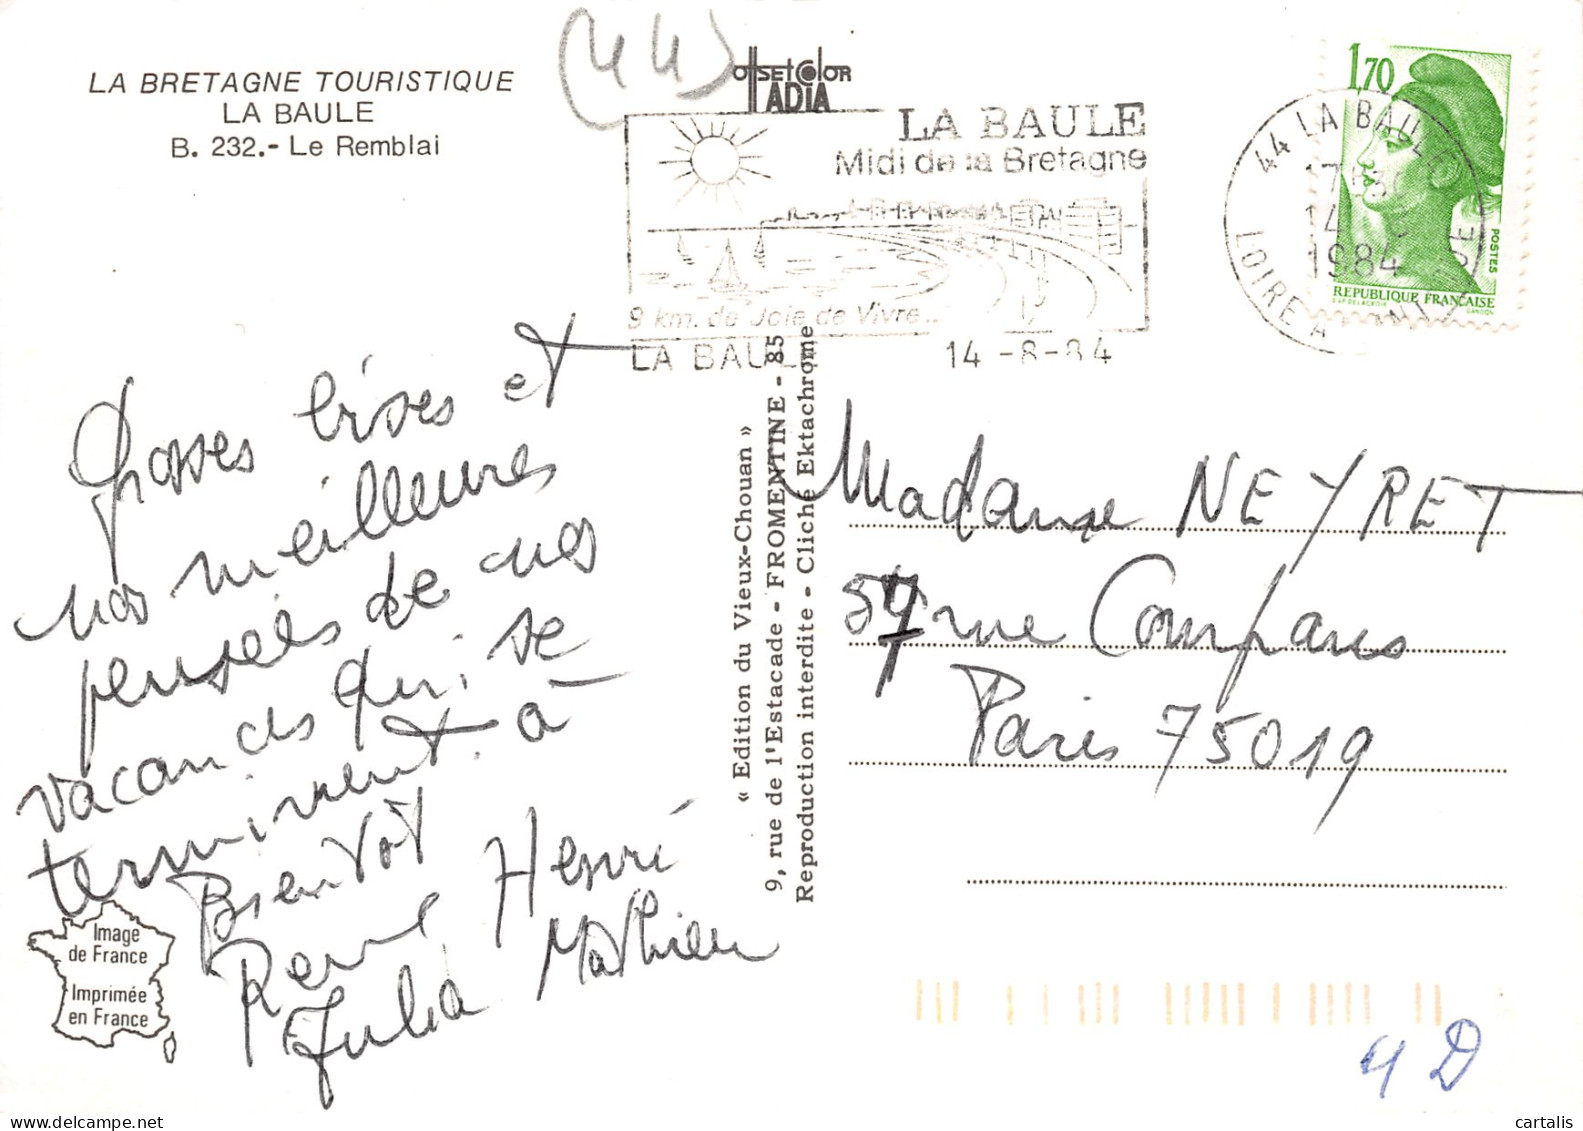 (44)
LA BRETAGNE TOURISTIQUE
LA BAULE
B. 232.- Le Remblai
OffSET COLOR
IADIA
LA BAULE
Midi de la Bretagne
9 km. de Joie de Vivre...
LA BAULE 14 -8-84
44 LA BAULE
17H30
14 - 8
1984
LOIRE ATLANTIQUE
1,70
POSTES
REPUBLIQUE FRANÇAISE
GANDON
Grosses bises et
nos meilleures
pensées de nos
vacances qui se
terminent. à
Bientot
René Henri
Julia Mathieu
« Edition du Vieux-Chouan »
9, rue de l'Estacade - FROMENTINE - 85
Reproduction interdite - Cliché Ektachrome
Madame NEYRET
57 rue Compans
Paris 75019
Image
de France
Imprimée
en France
4 D
cartalis